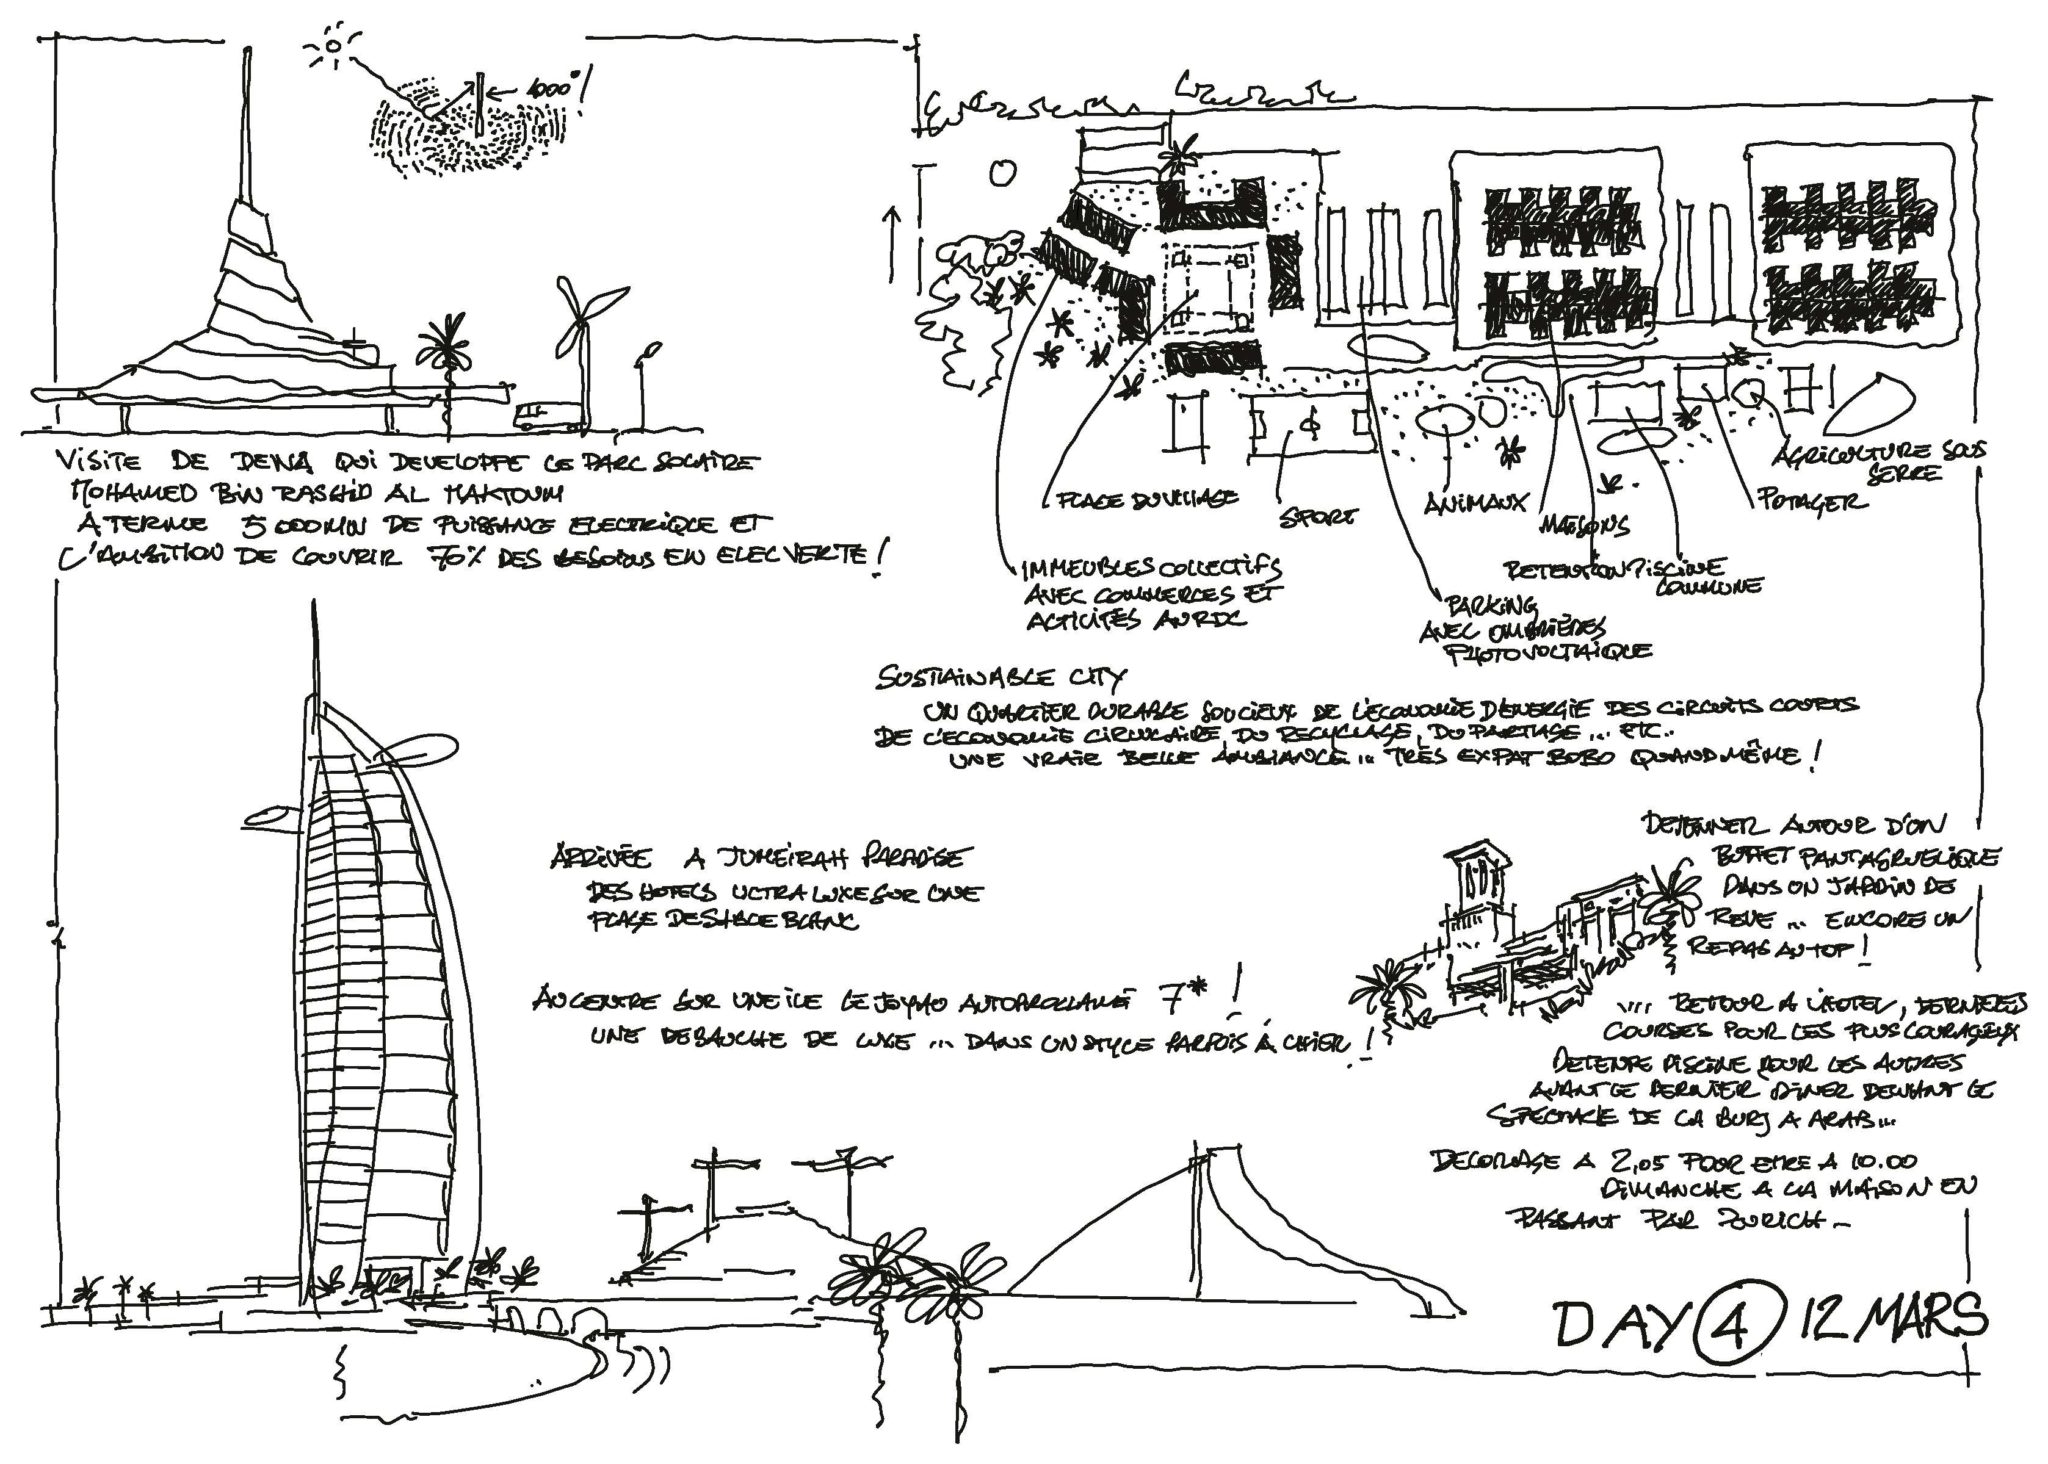 1000°
VISITE DE DEWA QUI DEVELOPPE LE PARC SOLAIRE
MOHAMED BIN RASHID AL MAKTOUM
A TERME 5000MW DE PUISSANCE ELECTRIQUE ET
L'AMBITION DE COUVRIR 70% DES BESOINS EN ELEC VERTE!
PLACE DU VILLAGE
SPORT
ANIMAUX
MAISONS
POTAGER
AGRICULTURE SOUS
SERRE
RETENTION PISCINE
COMMUNE
IMMEUBLES COLLECTIFS
AVEC COMMERCES ET
ACTIVITÉS AU RDC
PARKING
AVEC OMBRIÈRES
PHOTOVOLTAIQUE
SUSTAINABLE CITY
UN QUARTIER DURABLE SOUCIEUX DE L'ÉCONOMIE D'ENERGIE DES CIRCUITS COURTS
DE L'ECONOMIE CIRCULAIRE, DU RECYCLAGE, DU PARTAGE... ETC..
UNE VRAIE BELLE AMBIANCE... TRÈS EXPAT BOBO QUAND MÊME!
ARRIVÉE A JUMEIRAH PARADISE
DES HOTELS ULTRA LUXE SUR UNE
PLAGE DE SABLE BLANC
AU CENTRE SUR UNE ILE LE JOYAU AUTOPROCLAMÉ 7* !
UNE DEBAUCHE DE LUXE ... DANS UN STYLE PARFOIS À CHIER!
DEJEUNER AUTOUR D'UN
BUFFET PANTAGRUELIQUE
DANS UN JARDIN DE
REVE ... ENCORE UN
REPAS AU TOP!
.... RETOUR A L'HOTEL, DERNIERES
COURSES POUR LES PLUS COURAGEUX
DETENTE PISCINE POUR LES AUTRES
AVANT LE DERNIER DINER DEVANT LE
SPECTACLE DE LA BURJ A ARAB...
DECOLLAGE A 2,05 POUR ETRE A 10.00
DIMANCHE A LA MAISON EN
PASSANT PAR ZURICH-
DAY 4 12 MARS